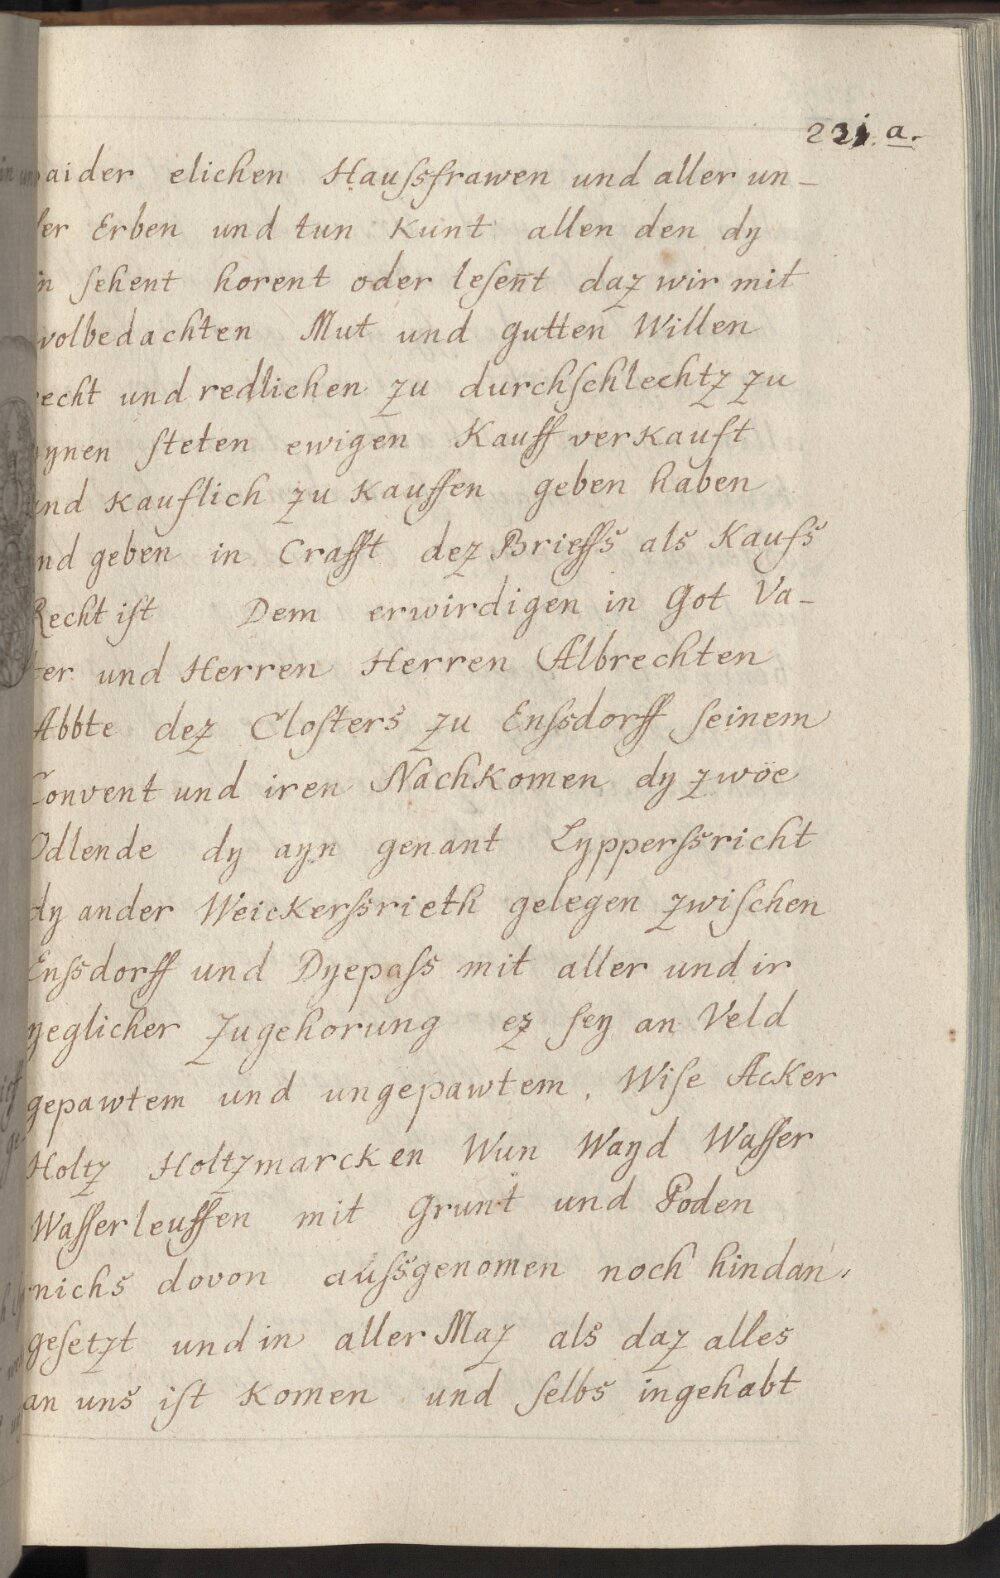 221. a.
paider elichen Haußfrawen und aller un-
ser Erben und tun Kunt allen den dy
in sehent horent oder lesen̄t daz wir mit
wolbedachten Mut und gutten Willen
recht und redlichen zu durchschlechtz zu
aynen steten ewigen Kauff verkauft
und kauflich zu kauffen geben haben
und geben in Crafft dez Brieffs als Kaufs
Recht ist Dem erwirdigen in Got Va-
ter und Herren Herren Albrechten
Abbte dez Closters zu Enssdorff seinem
Convent und iren Nachkomen dy zwöe
Odlende dy ayn genant Lypperssricht
dy ander Weickerssrieth gelegen zwischen
Enssdorff und Dyepass mit aller und ir
yeglicher Zugehorung ez sey an Veld
gepawtem und ungepawtem, Wise Acker
Holtz Holtzmarcken Wun Wayd Wasser
Wasserleuffen mit Grunt und Poden
nichs dovon aussgenomen noch hindan,
gesetzt und in aller Maz als daz alles
an uns ist komen und selbs ingehabt